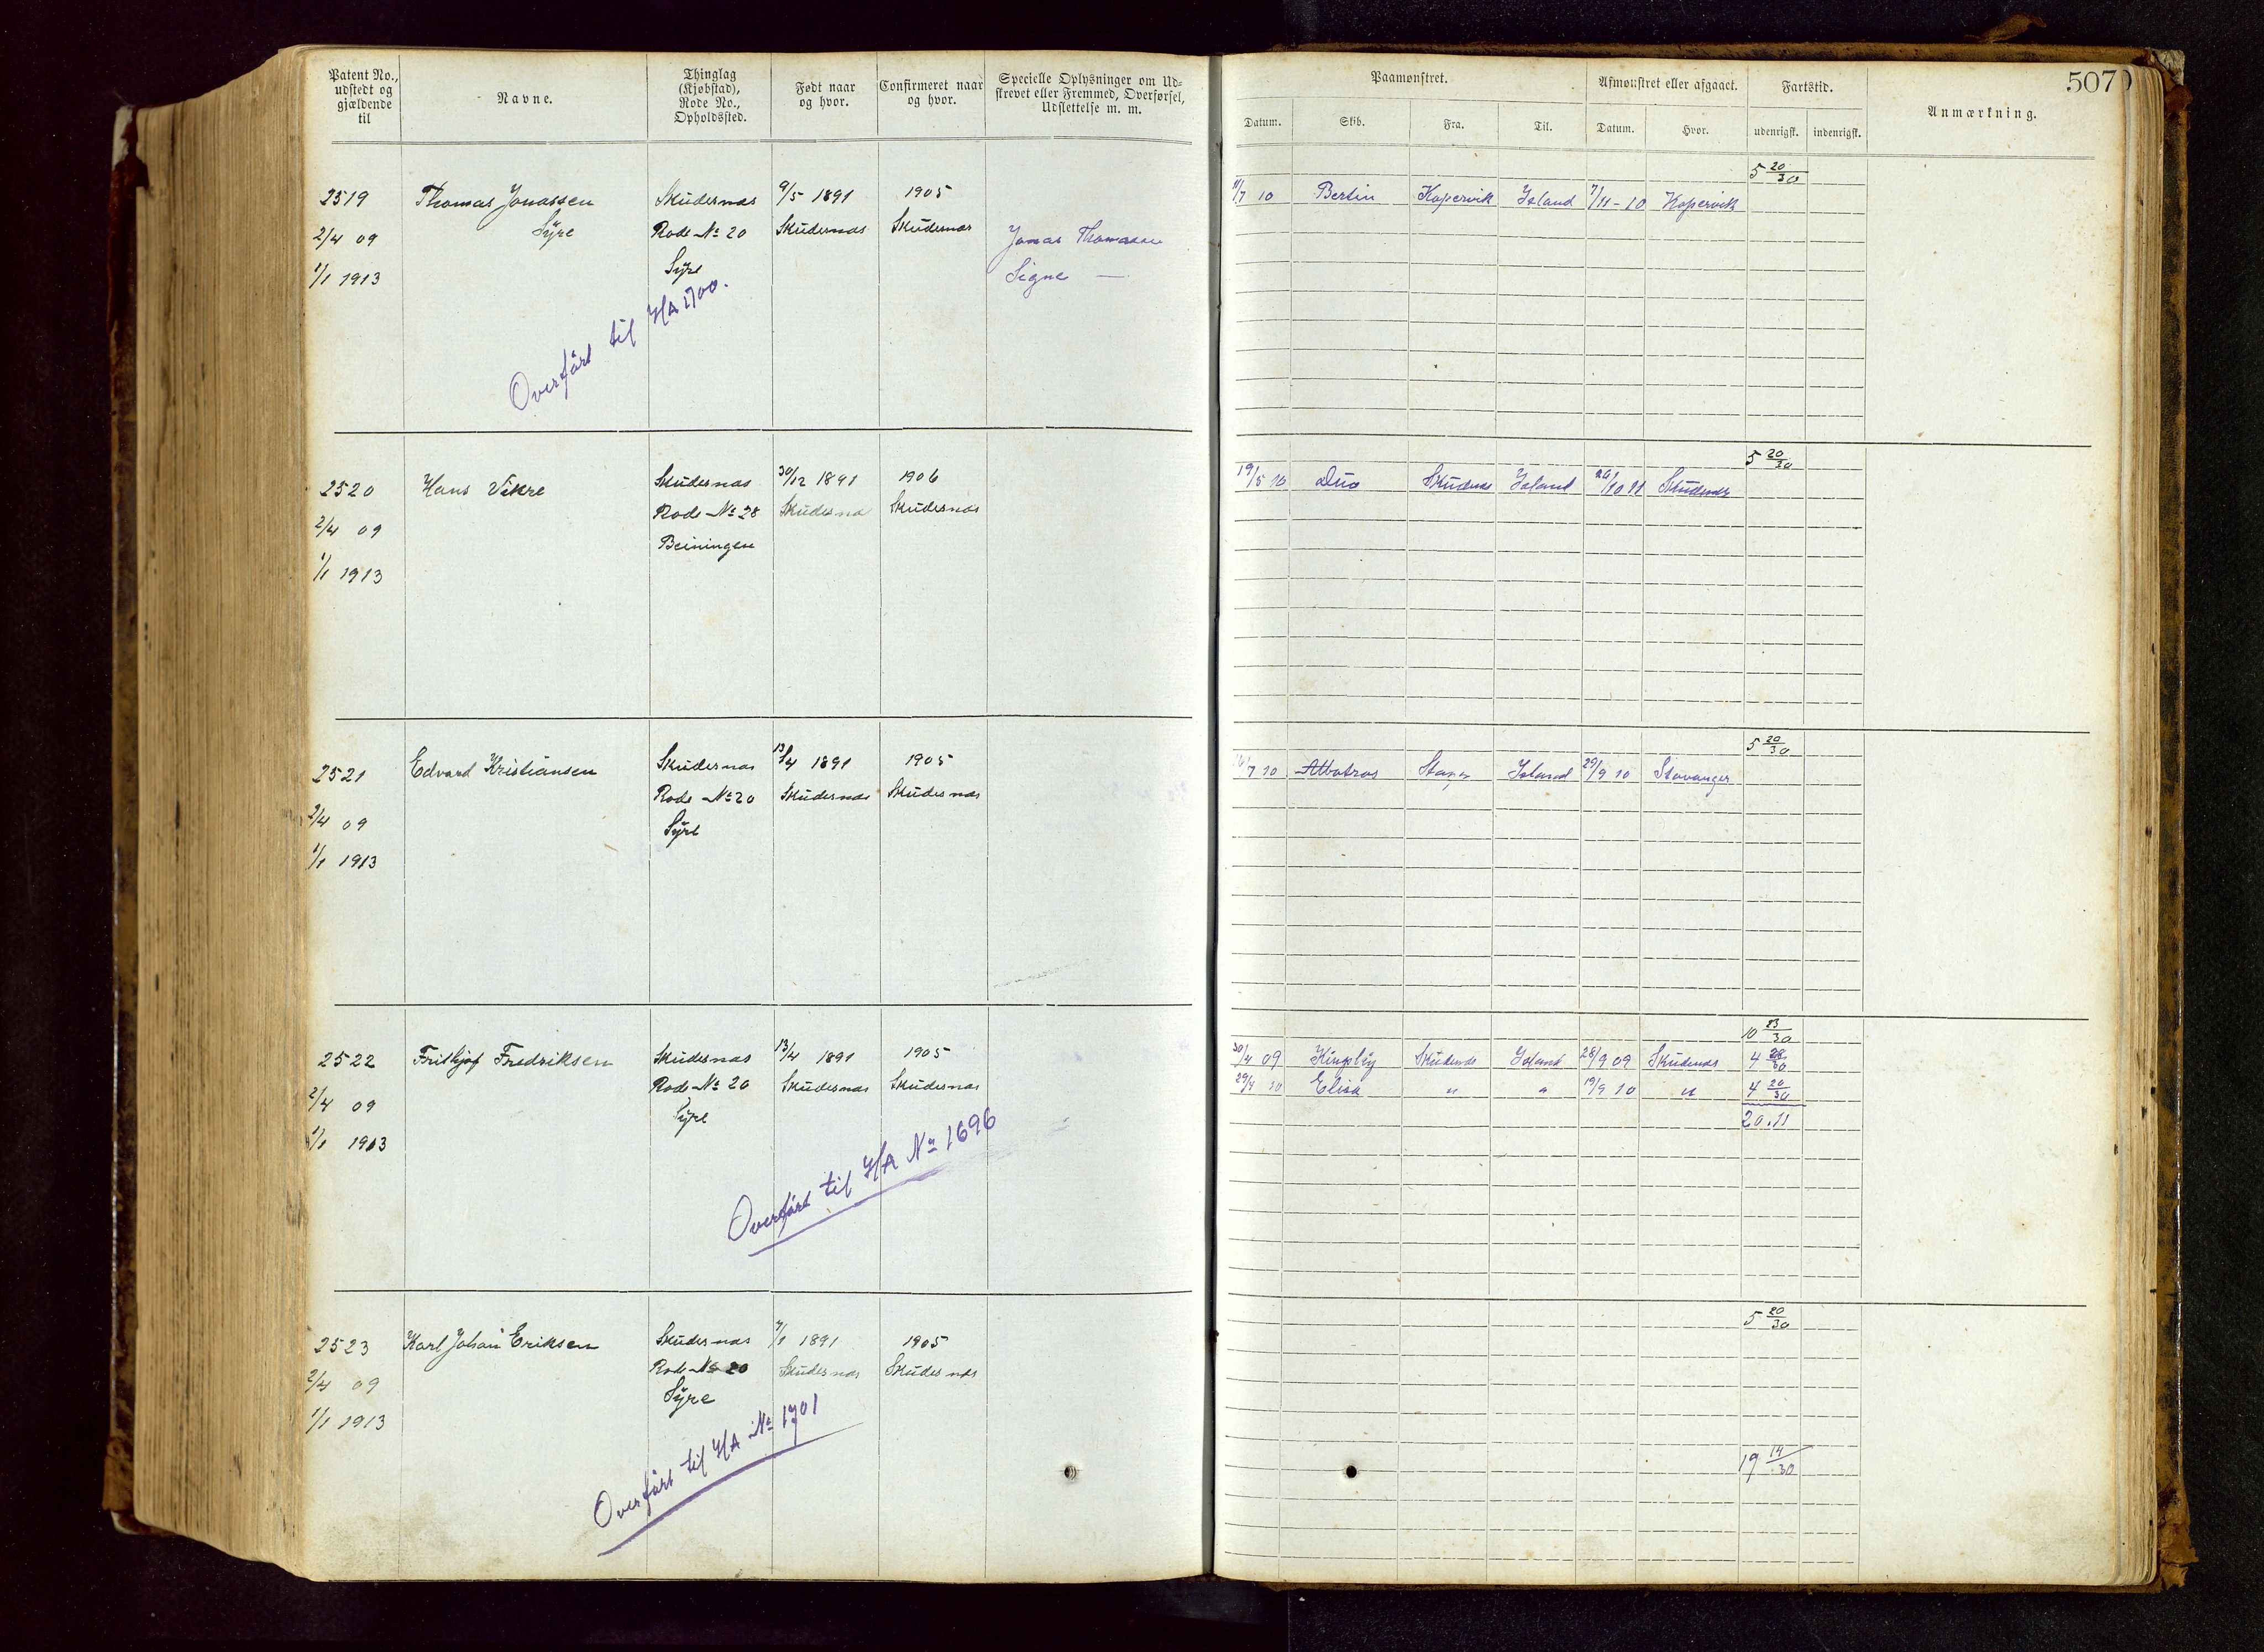 Patent No., udstedt og gjældende til
Navne.
Thinglag (Kjøbstad), Rode No., Opholdssted.
Født naar og hvor.
Confirmeret naar og hvor.
Specielle Oplysninger om Udskrevet eller Fremmed, Overførsel, Udslettelse m. m.
Paamønstret.
Datum. Skib. Fra. Til.
Afmønstret eller afgaaet.
Datum. Hvor.
Fartstid.
udenrigsk. indenrigsk.
Anmærkning.
507
5 20/30
2519 Thomas Jonassen Skudesnæs 9/5 1891 1905
2/4 09 Syre Rode No 20 Skudesnæs Skudesnæs Jonas Thomassen
1/1 1913 Syre Signe —
Overført til H/A 1700.
11/7 10 Bertin Kopervik Island 7/11-10 Kopervik
5 20/30
2520 Hans Vikre Skudesnæs 30/12 1891 1906
2/4 09 Rode No 28 Skudesnæs Skudesnæs
1/1 1913 Beiningen
19/5 10 Duo Skudesnæs Island 26/10 11 Skudesnæs
5 20/30
2521 Edvard Kristiansen Skudesnæs 13/4 1891 1905
2/4 09 Rode No 20 Skudesnæs Skudesnæs
1/1 1913 Syre
7 10 Albatros Stavgr Island 29/9 10 Stavanger
10 23/30
2522 Frithjof Fredriksen Skudesnæs 13/4 1891 1905
2/4 09 Rode No 20 Skudesnæs Skudesnæs
1/1 1913 Syre
Overført til H/A No 1696
30/4 09 Skudesnæs Island 28/9 09 Skudesnæs 4 28/30
29/4 10 Elisa " " 19/9 10 " 4 20/30
20.11
5 20/30
2523 Karl Johan Eriksen Skudesnæs 7/1 1891 1905
2/4 09 Rode No 20 Skudesnæs Skudesnæs
1/1 1913 Syre
Overført til H/A No 1701
19 14/30